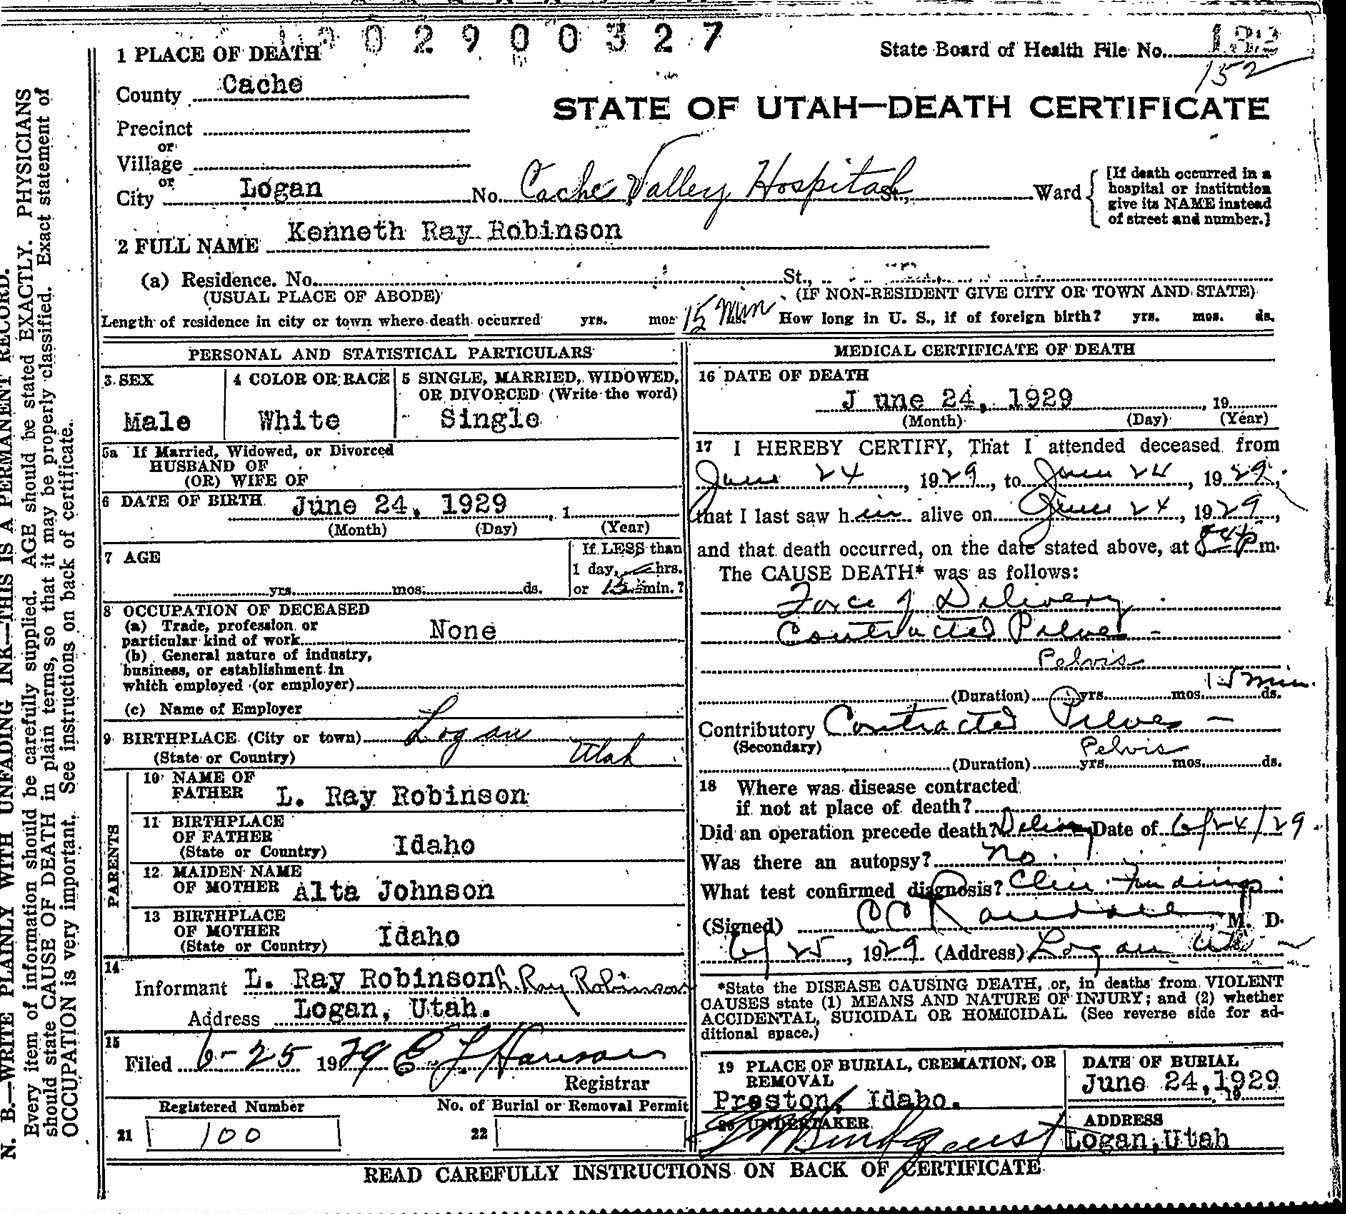 0 2 9 0 0 3 2 7
1 PLACE OF DEATH
State Board of Health File No.
152
County Cache
STATE OF UTAH—DEATH CERTIFICATE
Precinct
or
Village
or
City Logan No. Cache Valley Hospital St., Ward
[If death occurred in a
hospital or institution
give its NAME instead
of street and number.]
2 FULL NAME Kenneth Ray Robinson
(a) Residence. No. St.,
(USUAL PLACE OF ABODE) (IF NON-RESIDENT GIVE CITY OR TOWN AND STATE)
Length of residence in city or town where death occurred yrs. mos 15 Min How long in U. S., if of foreign birth? yrs. mos. ds.
PERSONAL AND STATISTICAL PARTICULARS
3 SEX
Male
4 COLOR OR RACE
White
5 SINGLE, MARRIED, WIDOWED,
OR DIVORCED (Write the word)
Single
5a If Married, Widowed, or Divorced
HUSBAND OF
(OR) WIFE OF
6 DATE OF BIRTH June 24, 1929, 1
(Month) (Day) (Year)
7 AGE
yrs. mos. ds.
If LESS than
1 day, hrs.
or 15 min.?
8 OCCUPATION OF DECEASED
(a) Trade, profession or
particular kind of work None
(b) General nature of industry,
business, or establishment in
which employed (or employer)
(c) Name of Employer
9 BIRTHPLACE (City or town) Logan
(State or Country) Utah
PARENTS
10 NAME OF
FATHER L. Ray Robinson
11 BIRTHPLACE
OF FATHER
(State or Country) Idaho
12 MAIDEN NAME
OF MOTHER Alta Johnson
13 BIRTHPLACE
OF MOTHER
(State or Country) Idaho
14
Informant L. Ray Robinson L. Ray Robinson
Address Logan, Utah.
15
Filed 6-25 1929
Registrar
Registered Number
21 100
No. of Burial or Removal Permit
22
MEDICAL CERTIFICATE OF DEATH
16 DATE OF DEATH
J une 24, 1929, 19
(Month) (Day) (Year)
17 I HEREBY CERTIFY, That I attended deceased from
June 24, 1929, to June 24, 1929,
that I last saw him alive on June 24, 1929,
and that death occurred, on the date stated above, at m.
The CAUSE DEATH* was as follows:
Force of Delivery
Contracted Pelves -
Pelvis
(Duration) yrs. mos. 15 min. ds.
Contributory Contracted Pelves -
(Secondary) Pelvis
(Duration) yrs. mos. ds.
18 Where was disease contracted
if not at place of death?
Did an operation precede death? Delivery Date of 6/24/29
Was there an autopsy? no
What test confirmed diagnosis? Clin. Findings
(Signed) M. D.
6/25, 1929 (Address) Logan Utah
*State the DISEASE CAUSING DEATH, or, in deaths from VIOLENT
CAUSES state (1) MEANS AND NATURE OF INJURY; and (2) whether
ACCIDENTAL, SUICIDAL OR HOMICIDAL. (See reverse side for ad-
ditional space.)
19 PLACE OF BURIAL, CREMATION, OR
REMOVAL
Preston, Idaho.
DATE OF BURIAL
June 24, 1929
19
20 UNDERTAKER
ADDRESS
Logan, Utah
READ CAREFULLY INSTRUCTIONS ON BACK OF CERTIFICATE
N. B.—WRITE PLAINLY WITH UNFADING INK—THIS IS A PERMANENT RECORD.
Every item of information should be carefully supplied. AGE should be stated EXACTLY. PHYSICIANS
should state CAUSE OF DEATH in plain terms, so that it may be properly classified. Exact statement of
OCCUPATION is very important. See instructions on back of certificate.